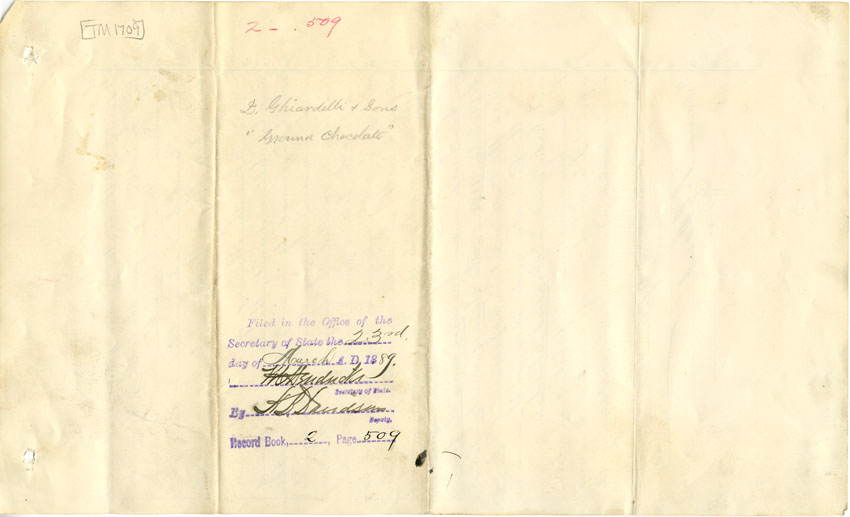 [TM 1709]
2 - . 509
D. Ghiardelli & Sons
"Ground Chocolate"
Filed in the Office of the
Secretary of State the 23rd.
day of March A. D. 1889.
W C Hendricks
Secretary of State.
By
Deputy.
Record Book, 2, Page 509